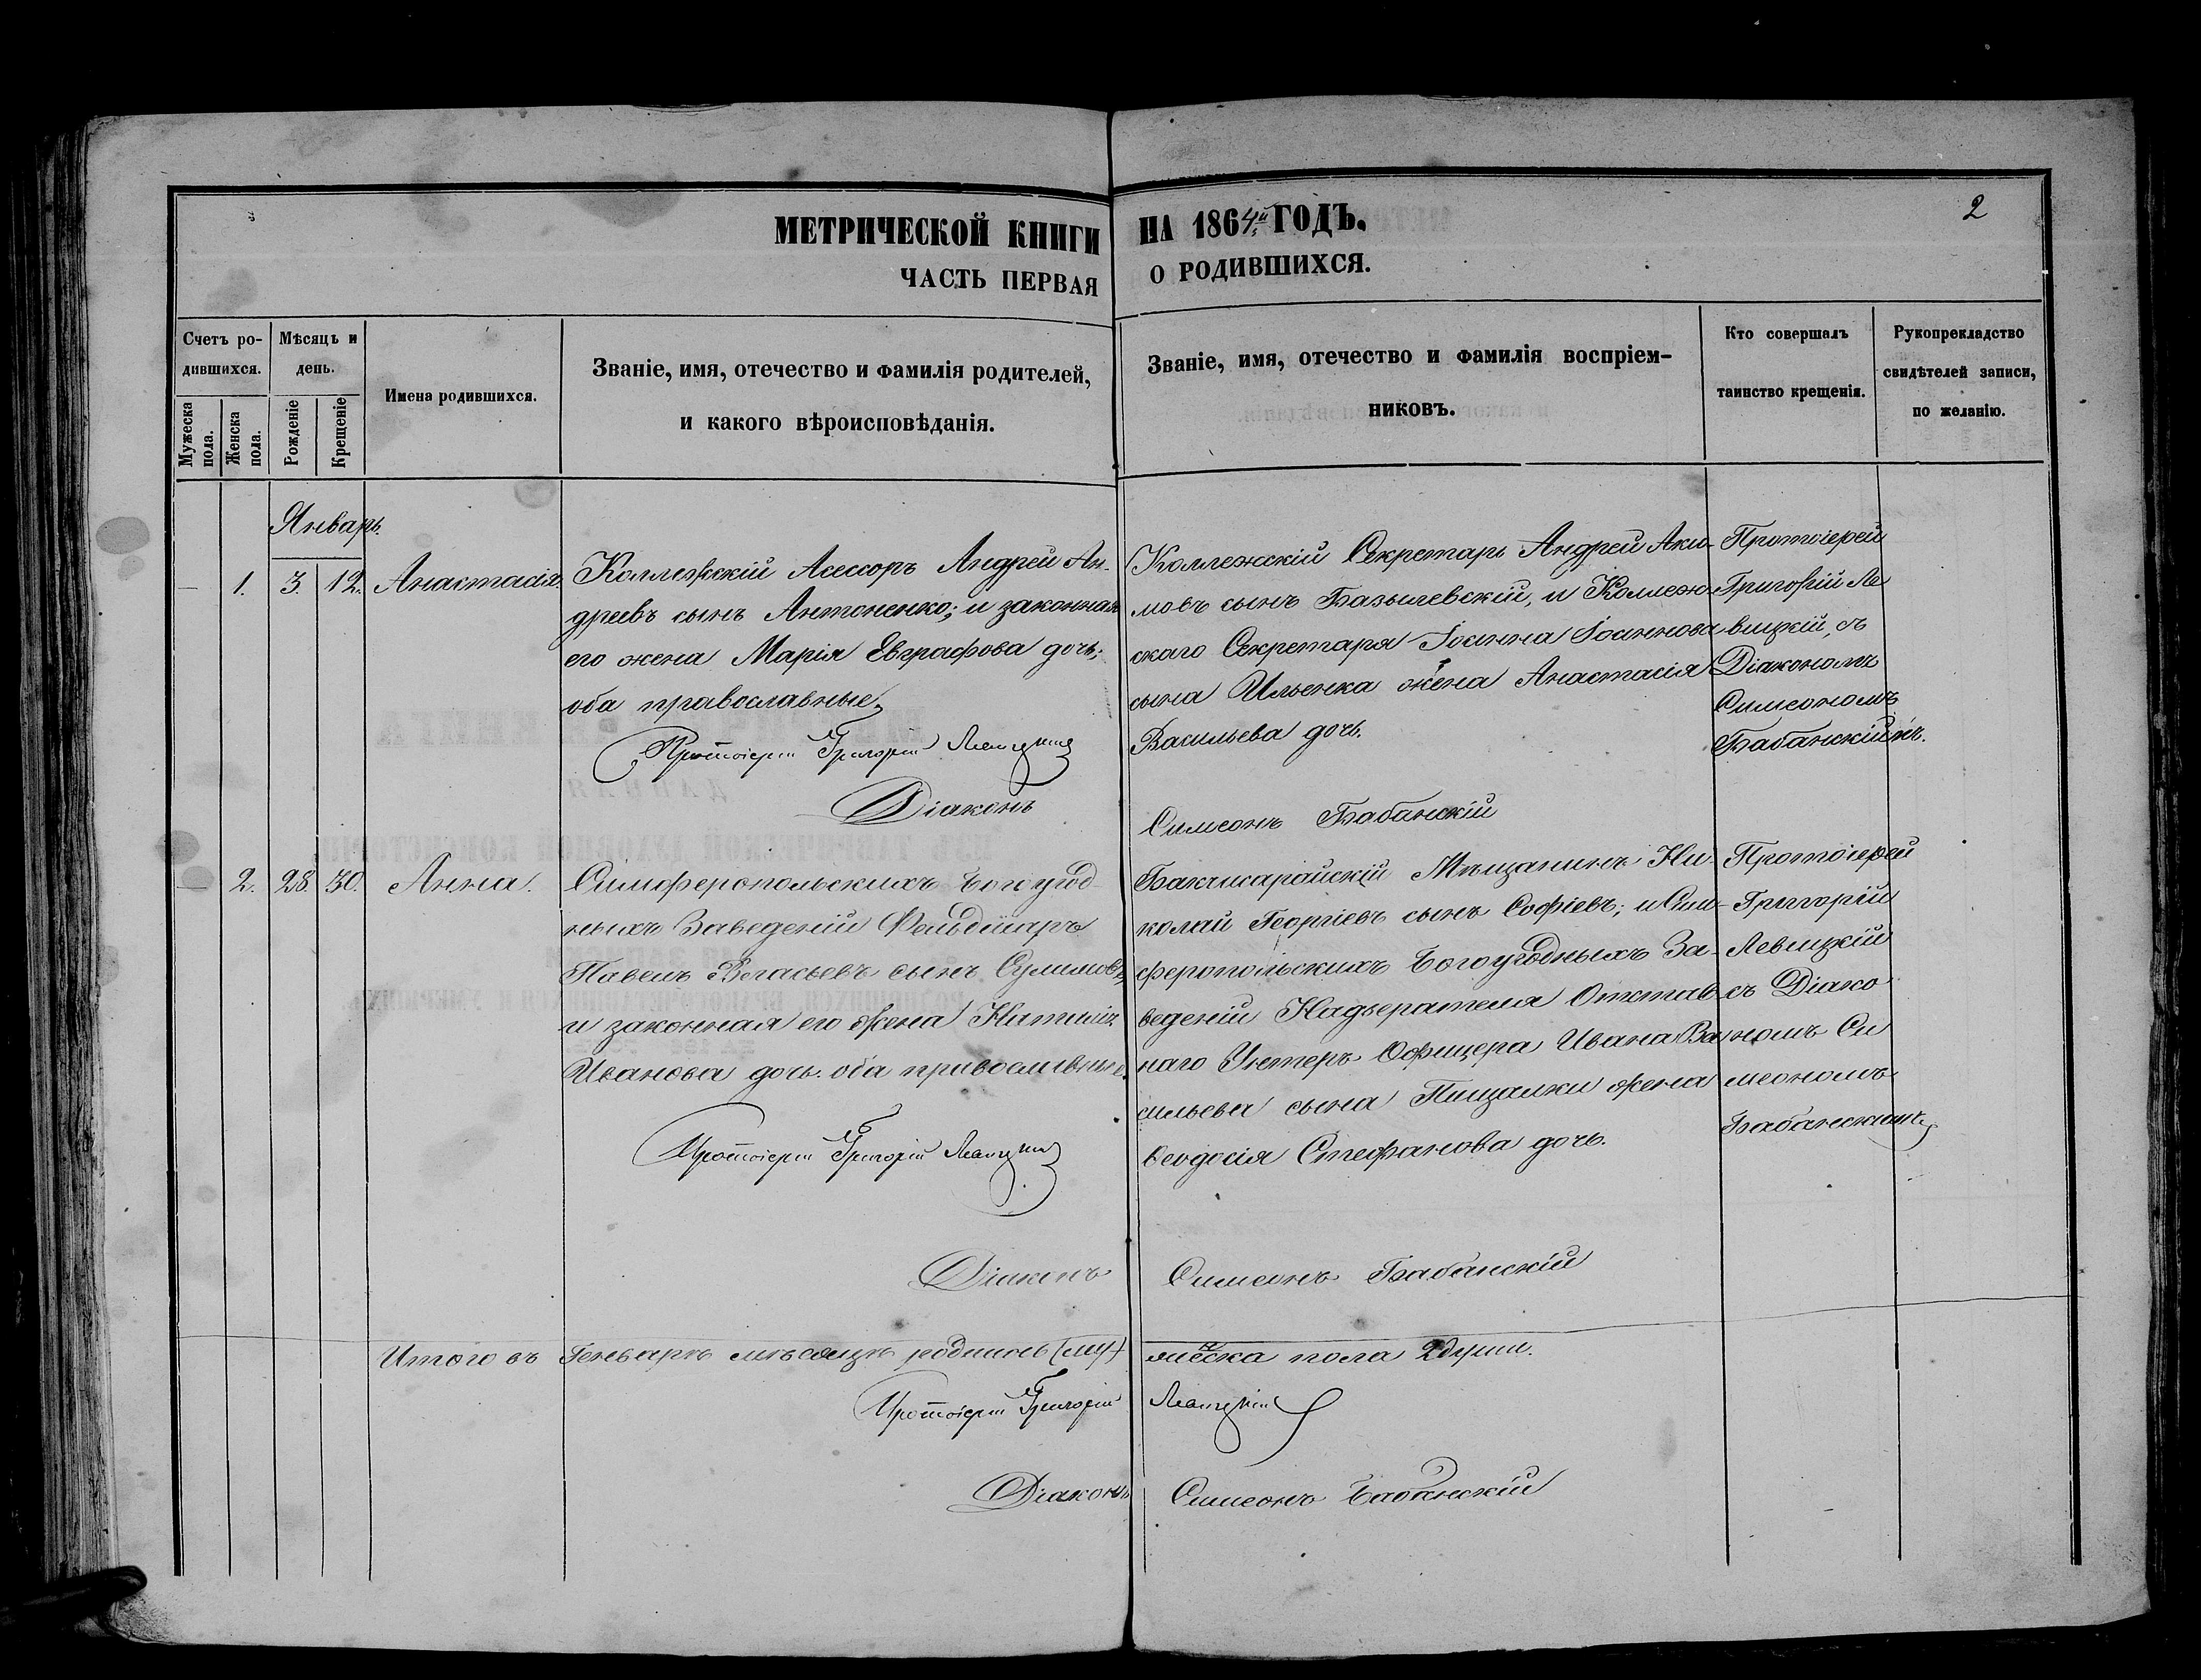 2
МЕТРИЧЕСКОЙ КНИГИ НА 1864й ГОДЪ.
ЧАСТЬ ПЕРВАЯ О РОДИВШИХСЯ.
Счетъ ро-
дившихся.
Мужеска
пола.
Женска
пола.
Мѣсяцъ и
день.
Рожденіе
Крещеніе
Имена родившихся.
Званіе, имя, отечество и фамилія родителей,
и какого вѣроисповѣданія.
Званіе, имя, отечество и фамилія воспріем-
никовъ.
Кто совершалъ
таинство крещенія.
Рукоприкладство
свидѣтелей записи,
по желанію.
Январь.
— 1. 3. 12. Анастасія.
Коллежскій Асессоръ Андрей Ан-
дреевъ сынъ Антоненко; и законная
его жена Марія Евграфова дочь;
оба православные.
Протоіерей Григорій Левицкій
Коллежскій Секретарь Андрей Аки-
мовъ сынъ Базылевскій, и Коллеж-
скаго Секретаря Іоанна Іоаннова
сына Ильенка жена Анастасія
Васильева дочь.
Протоіерей
Григорій Ле
вицкій, съ
Діакономъ
Симеономъ
Бабанскимъ.
Діаконъ Симеонъ Бабанскій
— 2. 28. 30. Анна.
Симферопольскихъ Богоугод-
ныхъ Заведеній Фельдшаръ
Павелъ Власьевъ сынъ Сулимовъ,
и законная его жена
Иванова дочь. оба православные.
Протоіерей Григорій Левицкій
Бахчисарайскій Мѣщанинъ Ни-
колай Георгіевъ сынъ Софіевъ; и Сим-
феропольскихъ Богоугодныхъ За-
веденій Надзерателя Отстав-
наго Унтеръ Офицера Ивана Ва
сильева сына Пищалки жена
Ѳеодосія Стефанова дочь.
Протоіерей
Григорій
Левицкій
съ Діако
номъ Си
меономъ
Бабанскимъ
Діаконъ Симеонъ Бабанскій
Итого въ Генваръ мѣсяцъ родилось (му) женска пола 2 души.
Протоіерей Григорій Левицкій
Діаконъ Симеонъ Бабанскій